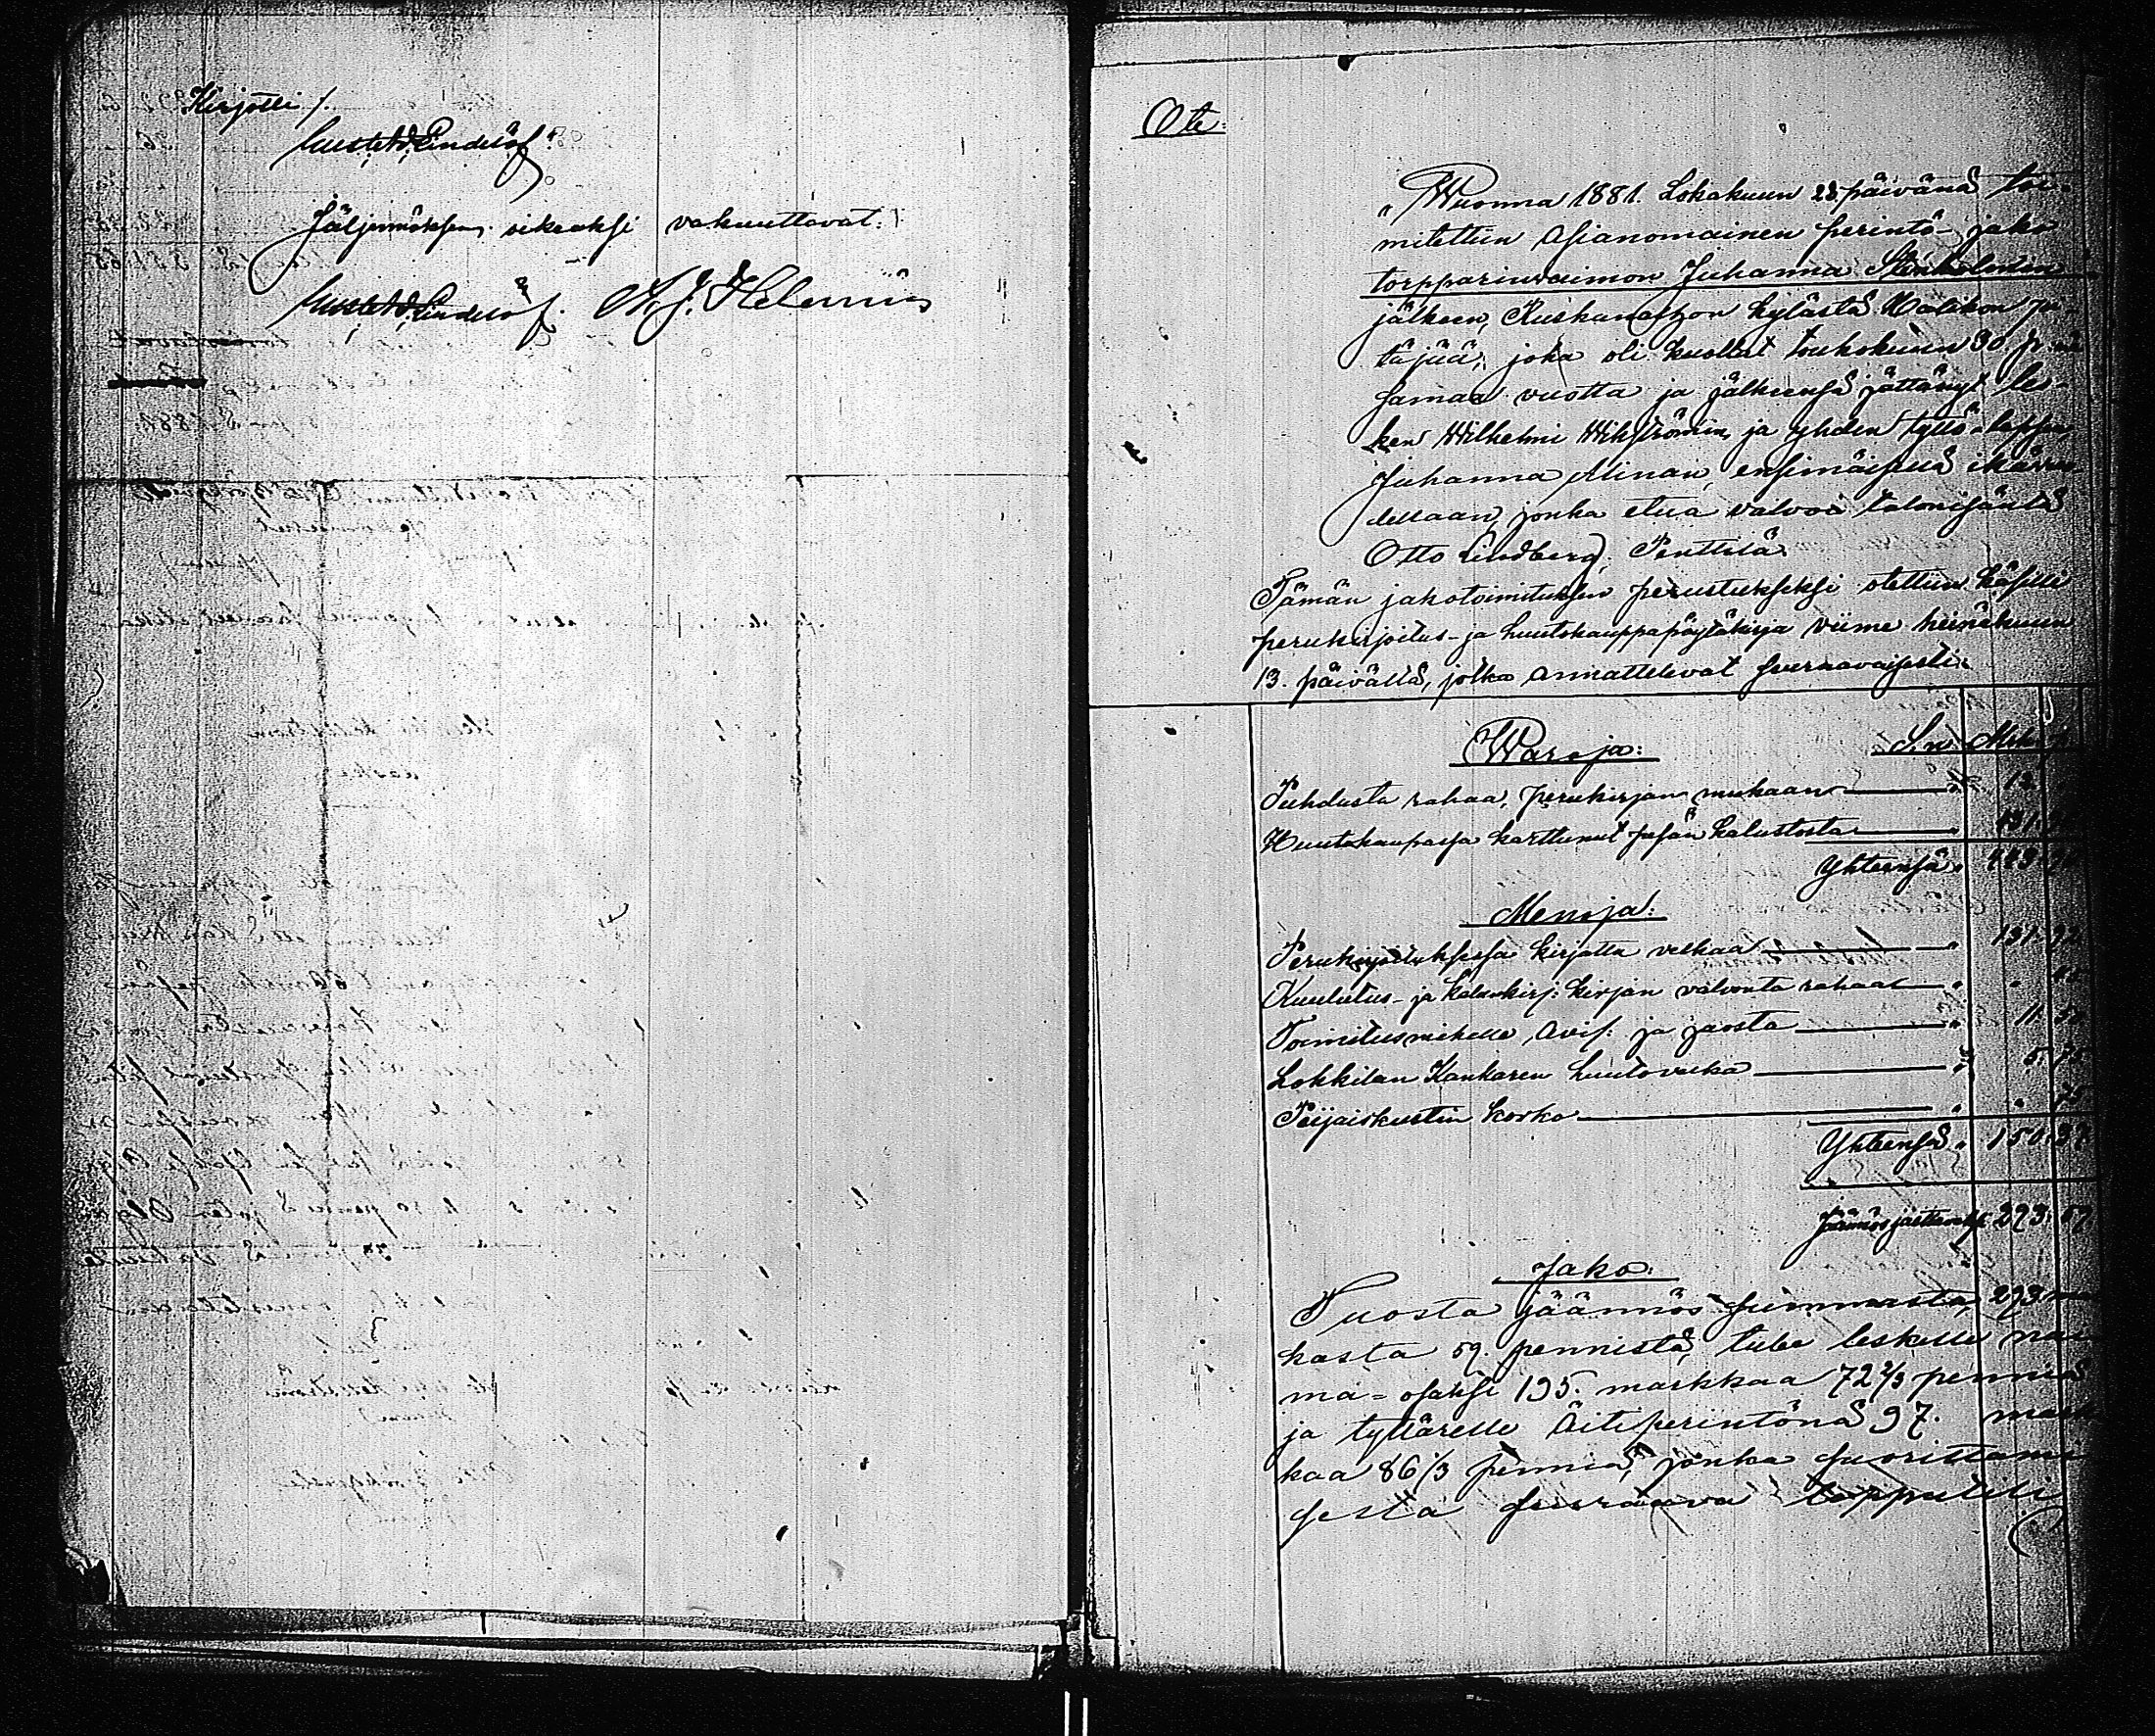 Kirjotti /.
Gust. Ad. Lindelöf.
Jäljennöksen oikeaksi vakuuttavat:
Gust. Ad. Lindelöf. K. J. Helenius
Ote:
"Wuonna 1881. Lokakuun 28. päivänä toi-
mitettiin asianomainen perintö-jako
torpparinvaimon Juhanna Stenholmin
jälkeen, Ruskanashon kylästä Halikon pi-
täjää, joka oli kuollut toukokuun 30. p:nä
samaa vuotta ja jälkeensä jättänyt les-
ken Wilhelmi Wikströmin, ja yhden tyttö-lapsen
Juhanna Minan, ensimäisellä ikävuo
dellaan, jonka etua valvoo talonisäntä
Otto Lindberg, Penttilä.
Tämän jakotoimituksen perustukseksi otettiin käsille
perukirjoitus- ja huutokauppapöytäkirja viime heinäkuun
13. päivältä, jotka ammattelevat seuraavaisesti:
Waroja: S.n Mrk.
Puhdasta rahaa, perukirjan mukaan " 12.
Huutokaupassa karttunut pesän kalustosta " 431.
Yhteensä " 443.
Menoja:
Perukirjoituksessa kirjottu velkaa " 131. 92
Kuulutus- ja kalunkirj: kirjan valvonta rahaa " "
Toimitusmiehelle, arvi: ja jaosta " 11.
Lokkilan Kankaren huutovelka " 5. 75
Peijaiskustin korko " " 75
Yhteensä " 150. 37
Jäännös jaettavaksi 293. 59.
Jako:
Tuosta jäännös summasta, 293. mar
kasta 59. pennistä, tulee leskelle nai
ma-osaksi 195. markkaa 72 2/3 penniä
ja tyttärelle äitiperintönä 97. mark
kaa 86 1/3 penniä, jonka suorittami
sesta seuraava lopputili